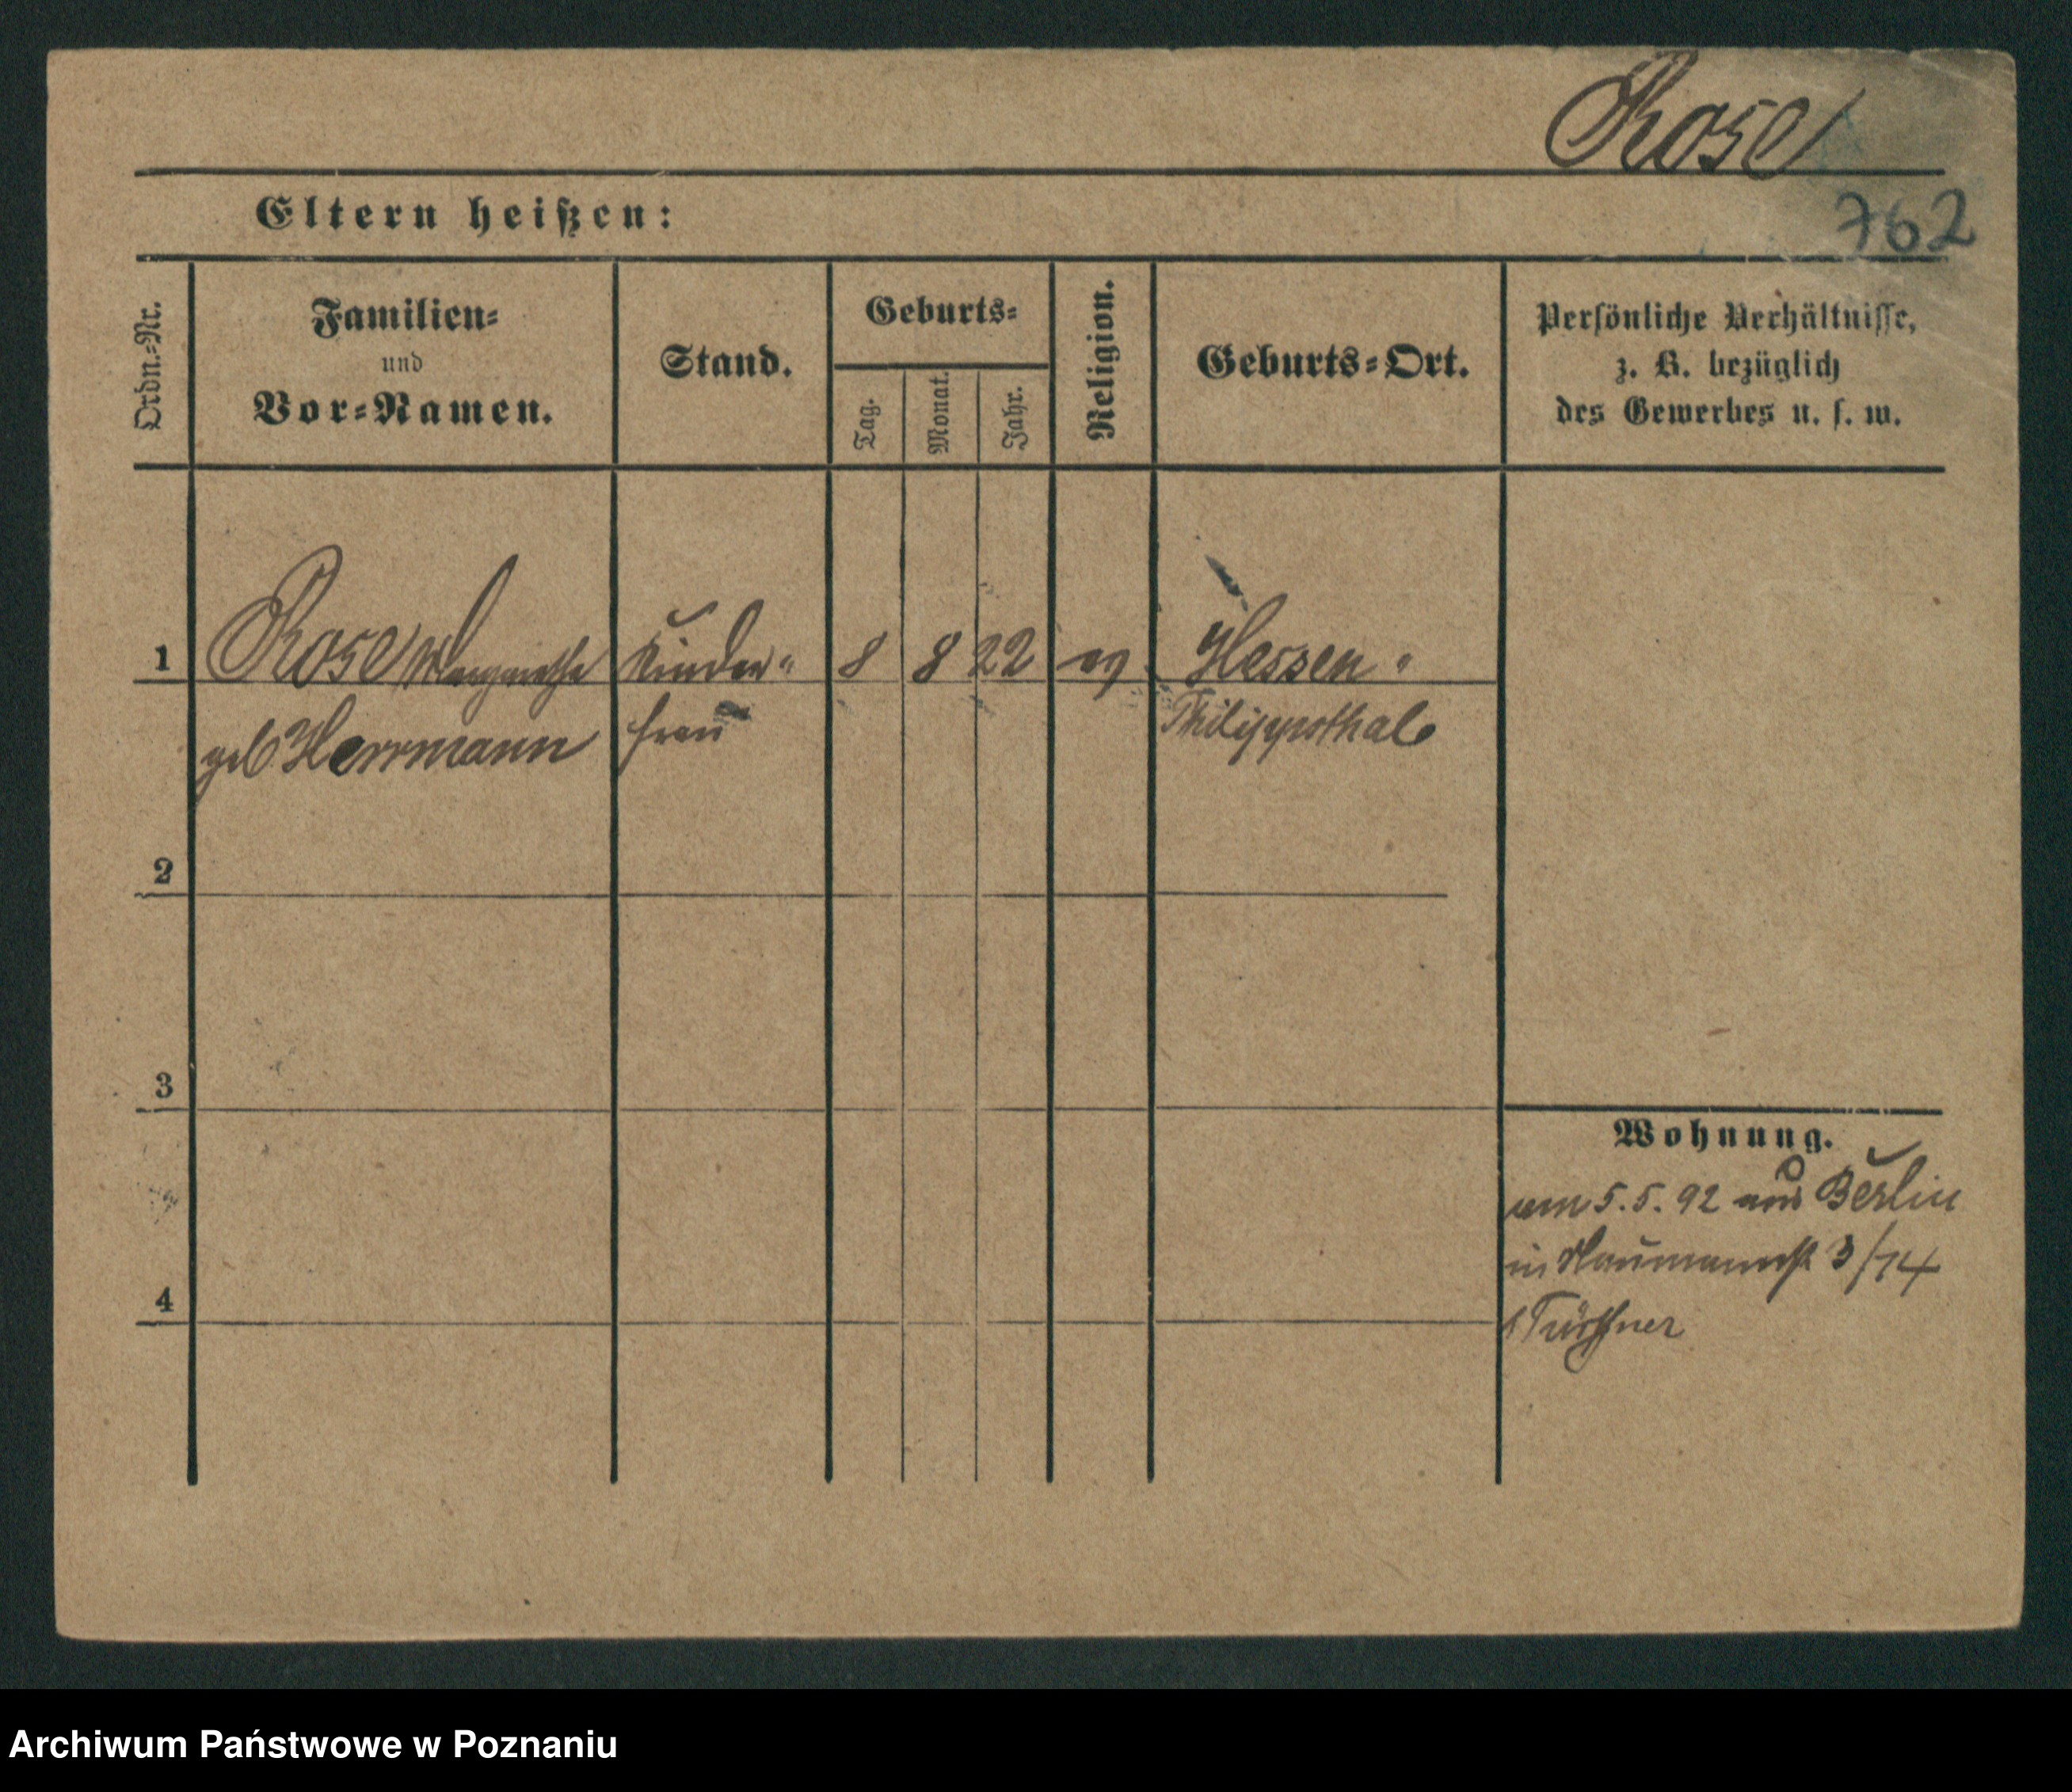 Rose
762
Eltern heißen:
Ordn.-Nr.
Familien-
und
Vor-Namen.
Stand.
Geburts-
Tag.
Monat.
Jahr.
Religion.
Geburts-Ort.
Persönliche Verhältnisse,
z. B. bezüglich
des Gewerbes u. s. w.
1
Rose Margarethe
geb Herrmann
Kinder-
frau
8
8
22
ev
Hessen-
Philippsthal
2
3
4
Wohnung.
am 5.5.92 aus Berlin
in Naumannstr 3/14
Archiwum Państwowe w Poznaniu